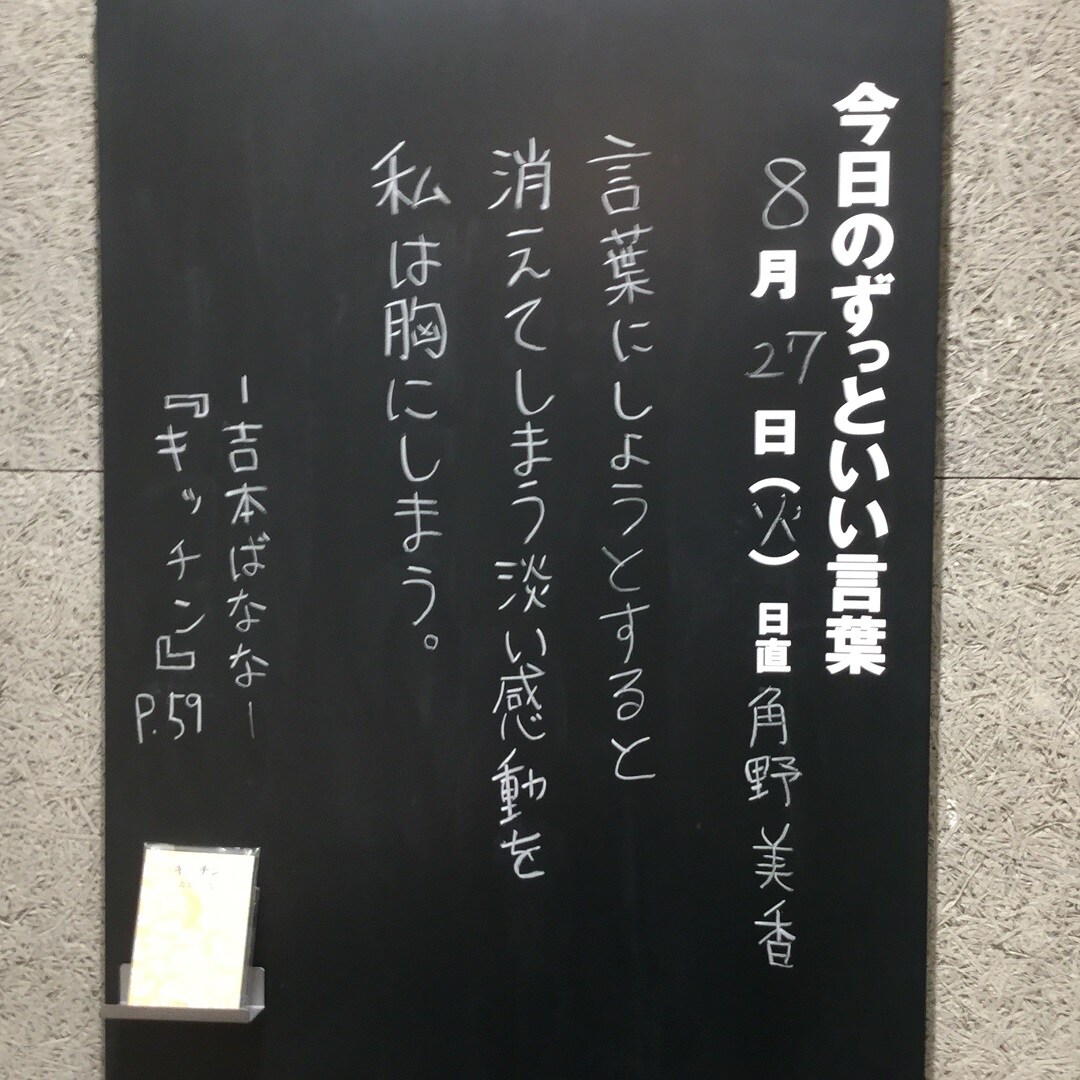 今日のずっといい言葉
8月27日(火) 日直 角野美香
言葉にしようとすると
消えてしまう淡い感動を
私は胸にしまう。
ー吉本ばななー
『キッチン』P.59
キッチン